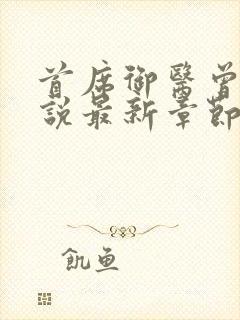 首席御醫曾
說最新章節
飢魚